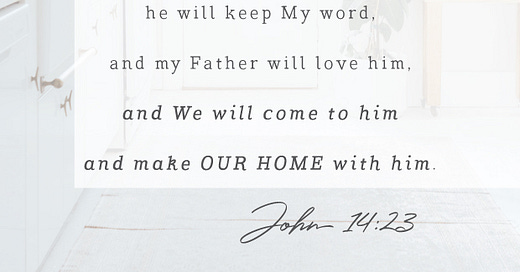 he will keep My word,
and my Father will love him,
and We will come to him
and make OUR HOME with him.
John 14:23